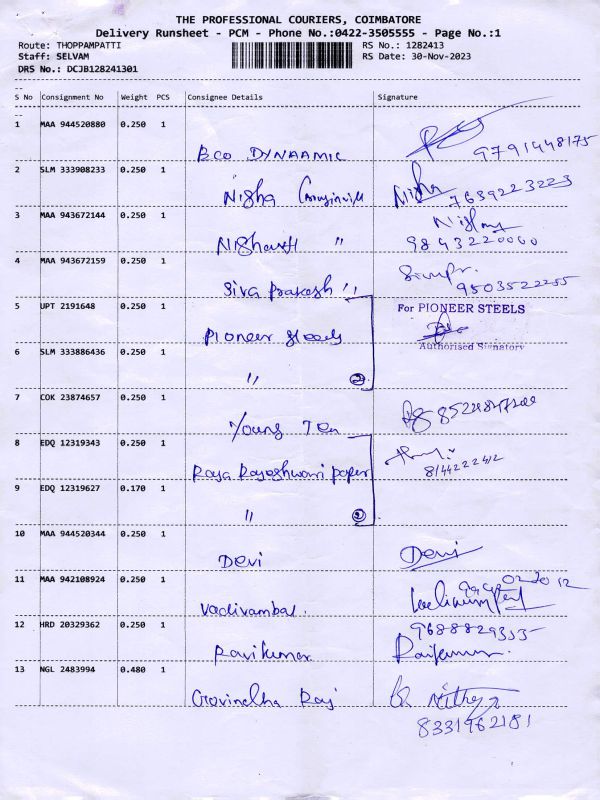 THE PROFESSIONAL COURIERS, COIMBATORE
Delivery Runsheet - PCM - Phone No.:0422-3505555 - Page No.:1
Route: THOPPAMPATTI RS No.: 1282413
Staff: SELVAM RS Date: 30-Nov-2023
DRS No.: DCJB128241301
S No Consignment No Weight PCS Consignee Details Signature
1 MAA 944520880 0.250 1
BCO DYNAAMIC 9791448175
2 SLM 333908233 0.250 1
Nisha Nisha 7639223223
3 MAA 943672144 0.250 1
" 9843220060
4 MAA 943672159 0.250 1
Siva prakash " 9503522255
5 UPT 2191648 0.250 1 For PIONEER STEELS
Pioneer steels
Authorised Signatory
6 SLM 333886436 0.250 1
" 2
7 COK 23874657 0.250 1
Young Ten
8 EDQ 12319343 0.250 1
Raja Rajeshwari paper
9 EDQ 12319627 0.170 1
" 2
10 MAA 944520344 0.250 1
Devi Devi
11 MAA 942108924 0.250 1
Vadivambal.
12 HRD 20329362 0.250 1 9688829355
Ravikumar Ravikumar
13 NGL 2483994 0.480 1
Govindha Raj Nithya
8331962181